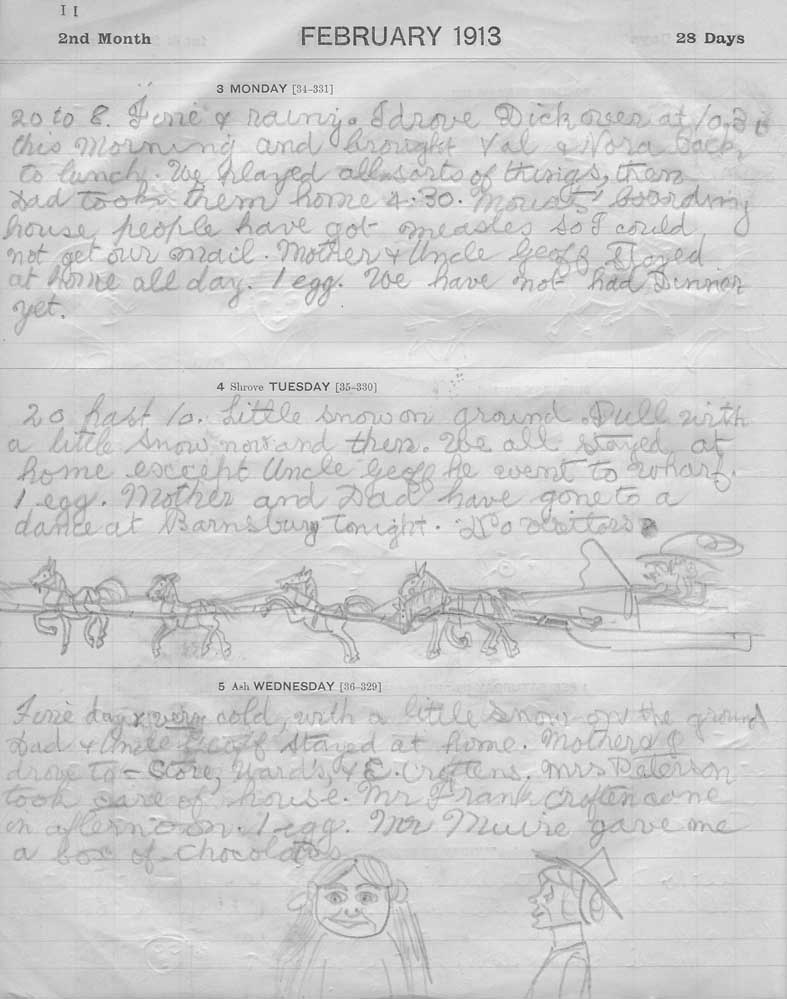 I I
2nd Month FEBRUARY 1913 28 Days
3 MONDAY [34-331]
20 to 8. Fine & rainy. I drove Dick over at 10.30
this Morning and brought Val & Nora back
to lunch. We played all sorts of things, then
Dad took them home 4.30. Mouats' boarding
house people have got measles so I could
not get our mail. Mother & Uncle Geoff Stayed
at home all day. 1 egg. We have not had Dinner
yet.
4 Shrove TUESDAY [35-330]
20 past 10. Little snow on ground. Dull with
a little Snow now and then. We all stayed at
home except Uncle Geoff he went to wharf.
1 egg. Mother and Dad have gone to a
dance at Barnsbury tonight. No visitors
5 Ash WEDNESDAY [36-329]
Fine day & very cold, with a little snow on the ground
Dad & Uncle Geoff stayed at home. Mother & I
drove to - Store, Ward's, & E. Croftens. Mrs Paterson
took care of house. Mr Frank Croften came
in afternoon. 1 egg. Mr Muire gave me
a box of chocolates